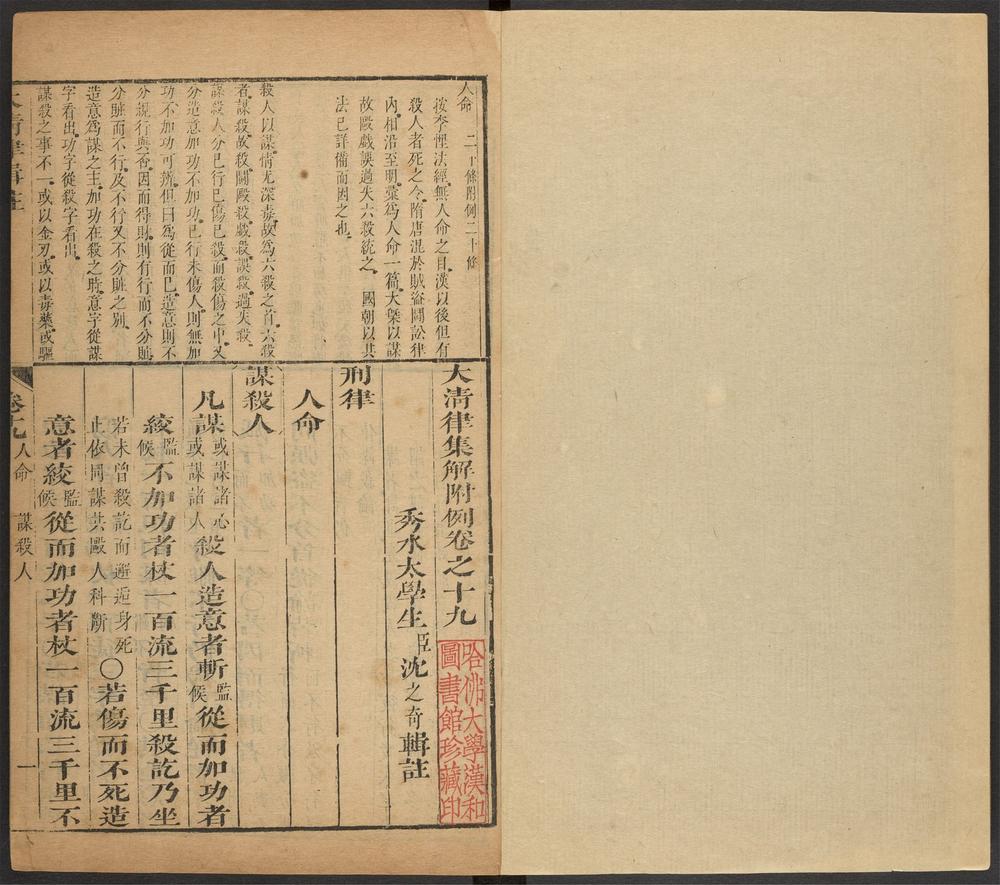 人命 二十條附例二十條
按李悝法經無人命之目漢以後但有
殺人者死之令隋唐混於賊盜鬬訟律
內相沿至明彙為人命一篇大槩以謀
故毆戲誤過失六殺統之 國朝以其
法已詳備而因之也
殺人以謀情尤深毒故為六殺之首六殺
者謀殺故殺鬬毆殺戲殺誤殺過失殺
謀殺人分已行已傷已殺而殺傷之中又
分造意加功不加功已行未傷人則無加
功不加功可辨但曰為從而已造意則不
分親行與否因而得財則有行而不分贓
分贓而不行及不行又不分贓之別
造意為謀之主加功在殺之時意字從謀
字看出功字從殺字看出
謀殺之事不一或以金刃或以毒藥或驅
大清律輯註
大清律集解附例卷之十九
秀水太學生臣沈之奇輯註
刑律
人命
謀殺人
凡謀或謀諸心或謀諸人殺人造意者斬監候從而加功者
絞監候不加功者杖一百流三千里殺訖乃坐
若未曾殺訖而邂逅身死止依同謀共毆人科斷○若傷而不死造
意者絞監候從而加功者杖一百流三千里不
卷十九 人命 謀殺人 一
哈佛大學漢和
圖書館珍藏印